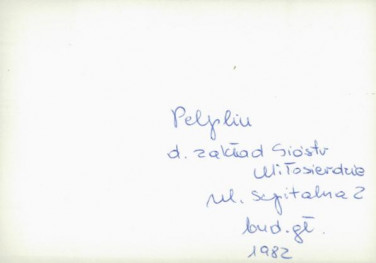 Pelplin
d. zakład Sióstr
Miłosierdzia
ul. Szpitalna 2
bud. gł.
1982